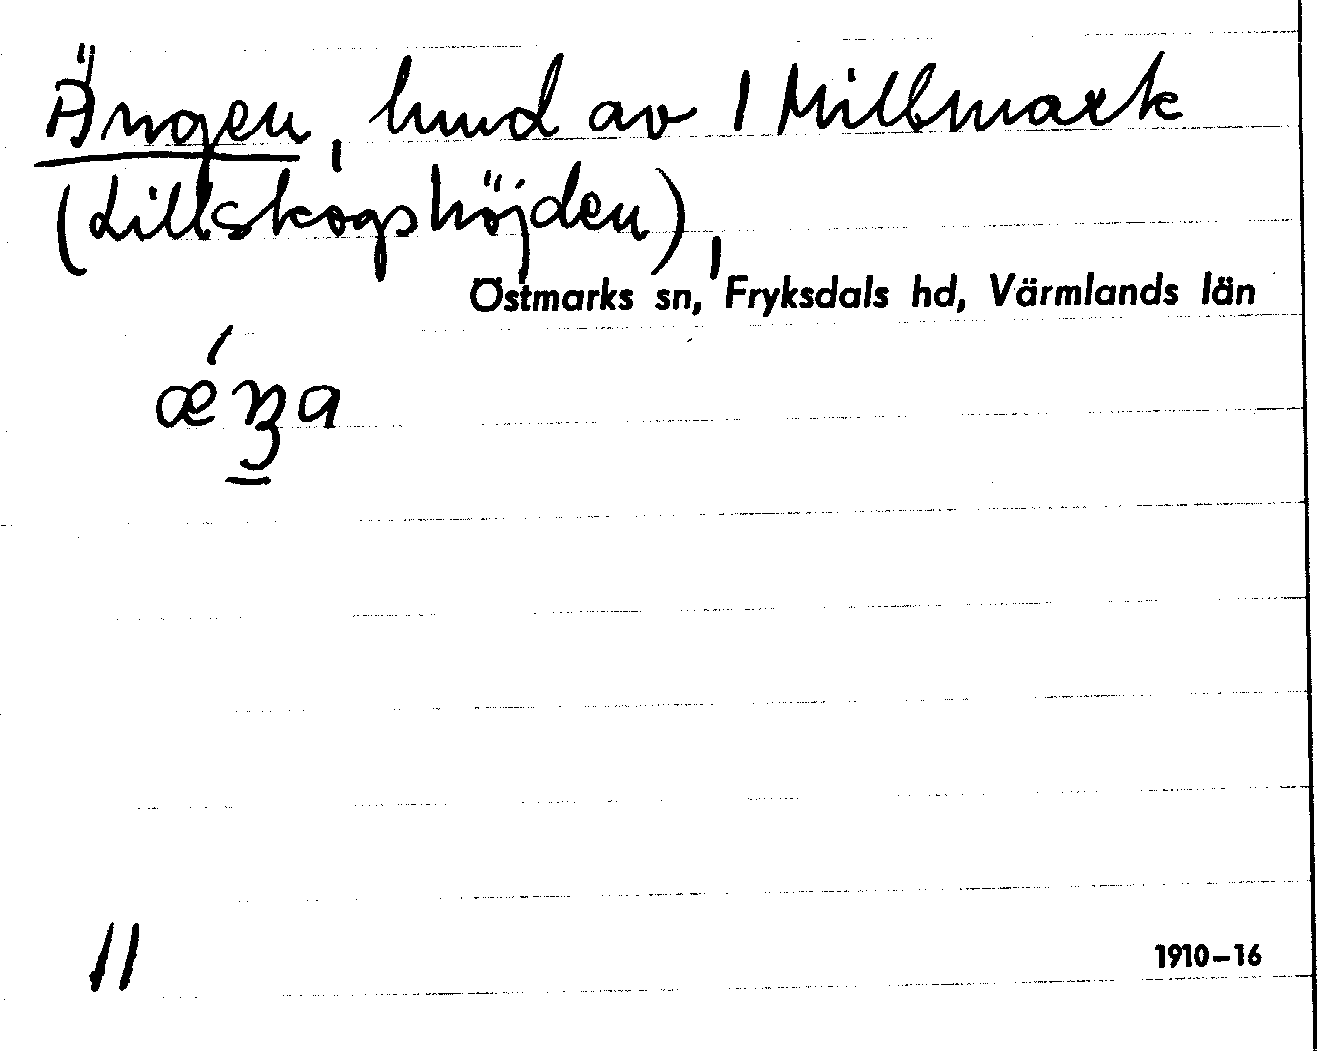 Ängen, hmd av 1 Millmark
(Lillskogshöjden),
Östmarks sn, Fryksdals hd, Värmlands län
11
1910–16